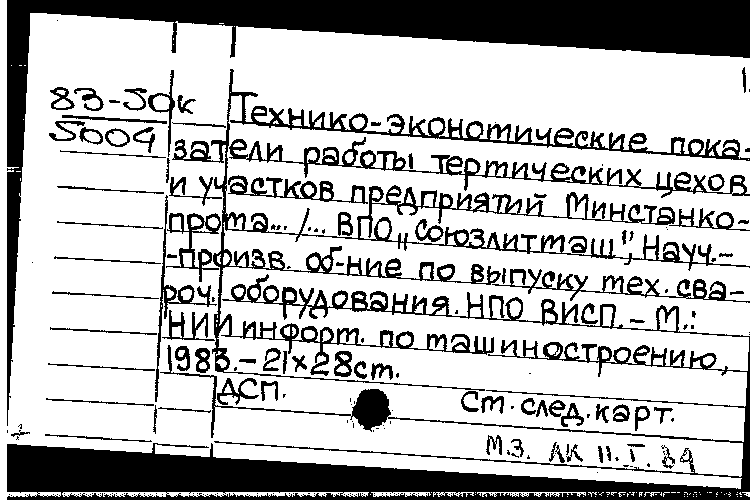 1.
83-50к Технико-экономические пока-
5004 затели работы термических цехов
и участков предприятий Минстанко-
прома... /... ВПО „Союзлитмаш", Науч.-
-произв. об-ние по выпуску тех. сва-
роч. оборудования. НПО ВИСП. – М.:
НИИ информ. по машиностроению,
1983. – 21×28 см.
ДСП.
См. след. карт.
М.З. АК 11.I.84